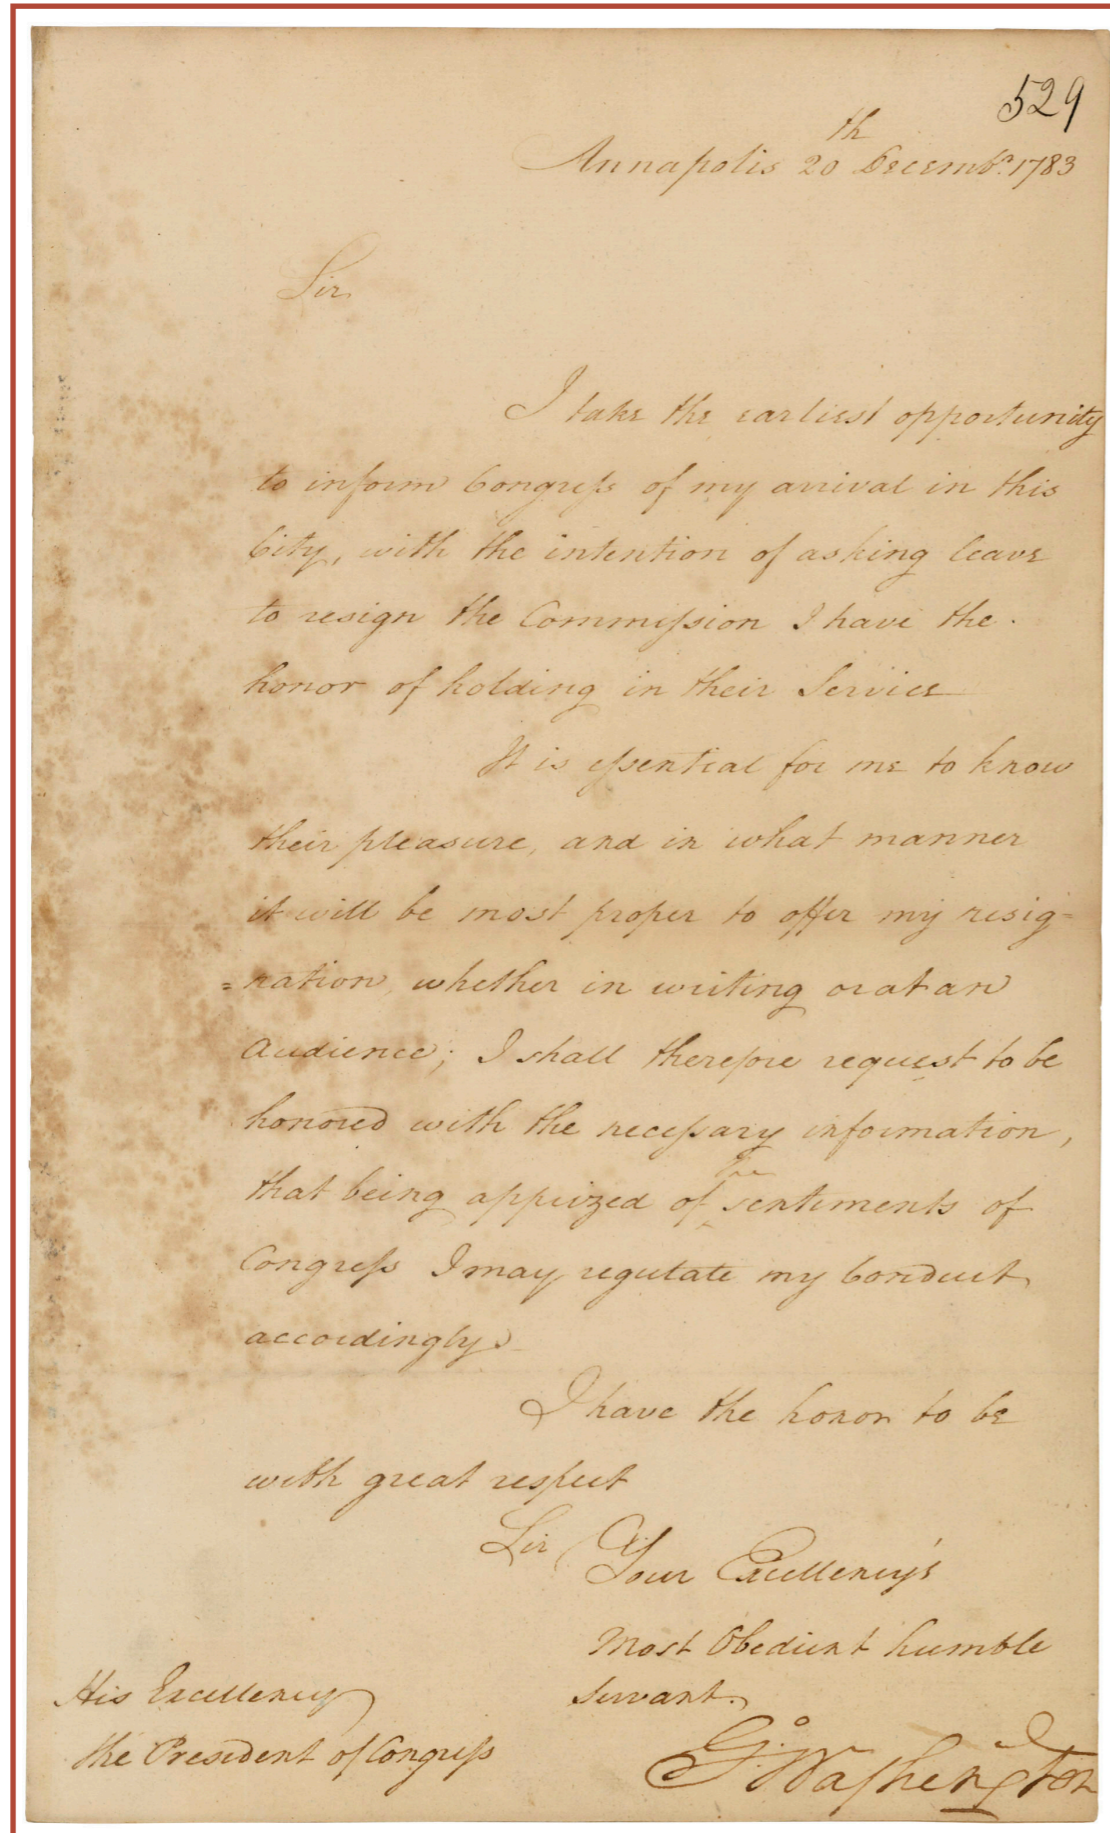 529
Annapolis 20th Decembr. 1783
Sir
I take the earliest opportunity
to inform Congress of my arrival in this
City, with the intention of asking leave
to resign the Commission I have the
honor of holding in their Service
It is essential for me to know
their pleasure, and in what manner
it will be most proper to offer my resig=
=nation, whether in writing or at an
Audience; I shall therefore request to be
honored with the necessary information,
that being apprized of the sentiments of
Congress I may regulate my Conduct
accordingly.
I have the honor to be
with great respect
Sir Your Excellency's
Most Obedient humble
servant.
His Excellency
the President of Congress
Go. Washington